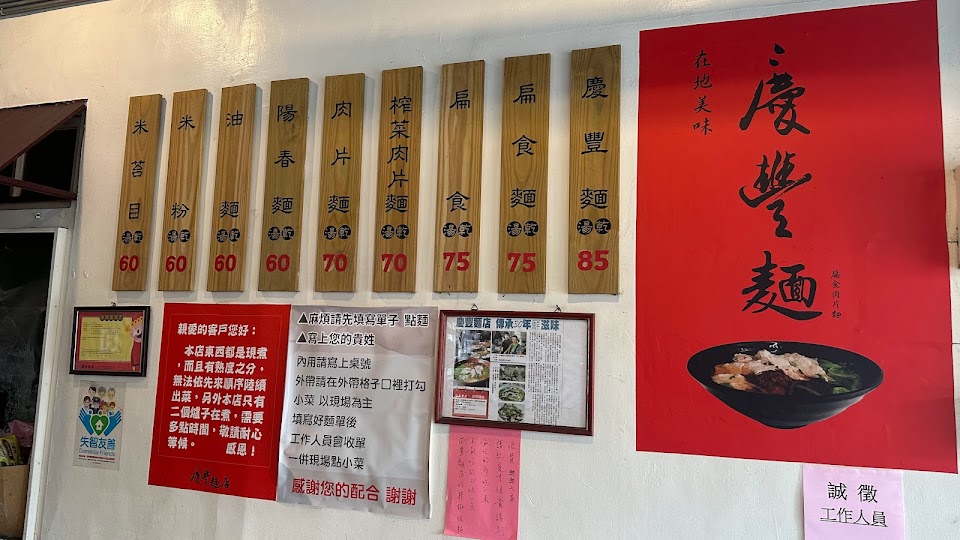 慶豐麵
湯乾
85
扁食麵
湯乾
75
扁食
湯乾
75
榨菜肉片麵
湯乾
70
肉片麵
湯乾
70
陽春麵
湯乾
60
油麵
湯乾
60
米粉
湯乾
60
米苔目
湯乾
60
在地美味
慶豐麵
扁食肉片麵
親愛的客戶您好：
本店東西都是現煮
,而且有熟度之分,
無法依先來順序陸續
出菜。另外本店只有
二個爐子在煮，需要
多點時間，敬請耐心
等候。 感恩！
慶豐麵店
▲麻煩請先填寫單子 點麵
▲寫上您的貴姓
內用請寫上桌號
外帶請在外帶格子口裡打勾
小菜 以現場為主
填寫好麵單後
工作人員會收單
一併現場點小菜
感謝您的配合 謝謝
慶豐麵店 傳承50年好滋味
失智友善
Dementia Friends
誠徵
工作人員